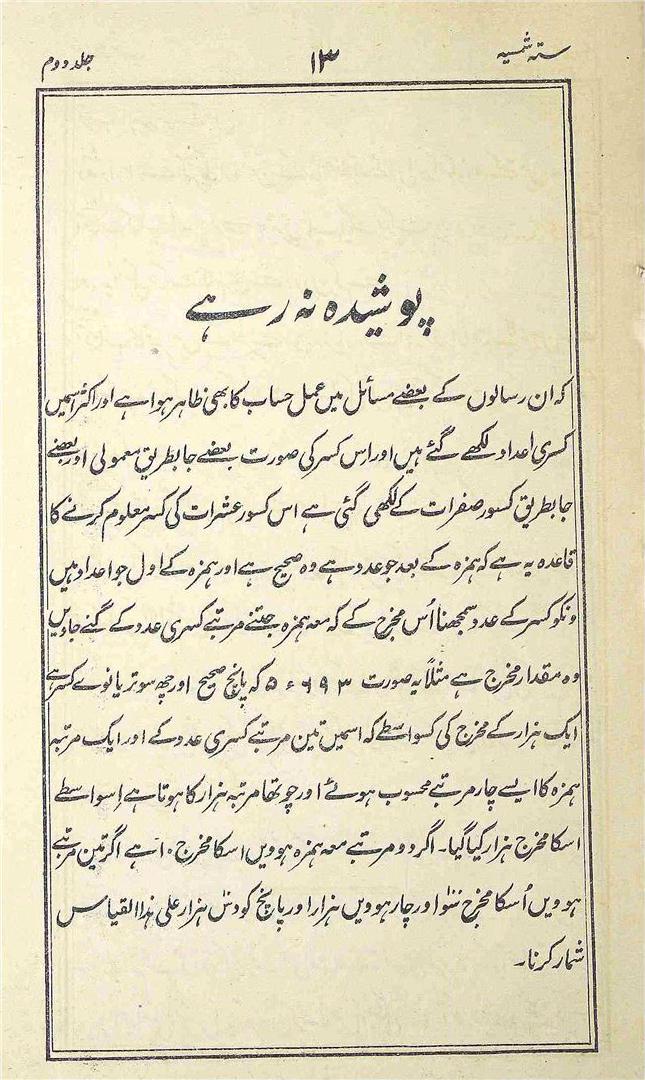 ستہ شمسیہ ۱۳ جلد دوم
پوشیدہ نہ رہے
کہ ان رسالوں کے بعضے مسائل میں عمل حساب کا بھی ظاہر ہوا ہے اور اکثر اسمیں
کسری اعداد لکھے گئے ہیں اور اس کسر کی صورت بعضے جا بطریق معمولی اور بعضے
جا بطریق کسور صفرات کے لکھی گئی ہے اس کسور عشرات کی کسر معلوم کرنے کا
قاعدہ یہ ہے کہ ہمزہ کے بعد جو عدد ہے وہ صحیح ہے اور ہمزہ کے اول جو اعداد ہیں
ونکو کسر کے عدد سمجھنا اُس مخرج کے کہ معہ ہمزہ جتنے مرتبے کسری عدد کے گنے جاویں
وہ مقدار مخرج ہے مثلاً یہ صورت ۶۹۳ء۵ کہ پانچ صحیح اور چھ سو تریانوے کسر ہے
ایک ہزار کے مخرج کی کسواسطے کہ اسمیں تین مرتبے کسری عدد کے اور ایک مرتبہ
ہمزہ کا ایسے چار مرتبے محسوب ہوئے اور چوتھا مرتبہ ہزار کا ہوتا ہے اسواسطے
اسکا مخرج ہزار کیا گیا۔ اگر دو مرتبے معہ ہمزہ ہوویں اسکا مخرج ۱۰ ہے اگر تین مرتبے
ہوویں اُسکا مخرج سَو اور چار ہوویں ہزار اور پانچ کو دس ہزار علی ہذا القیاس
شمار کرنا۔